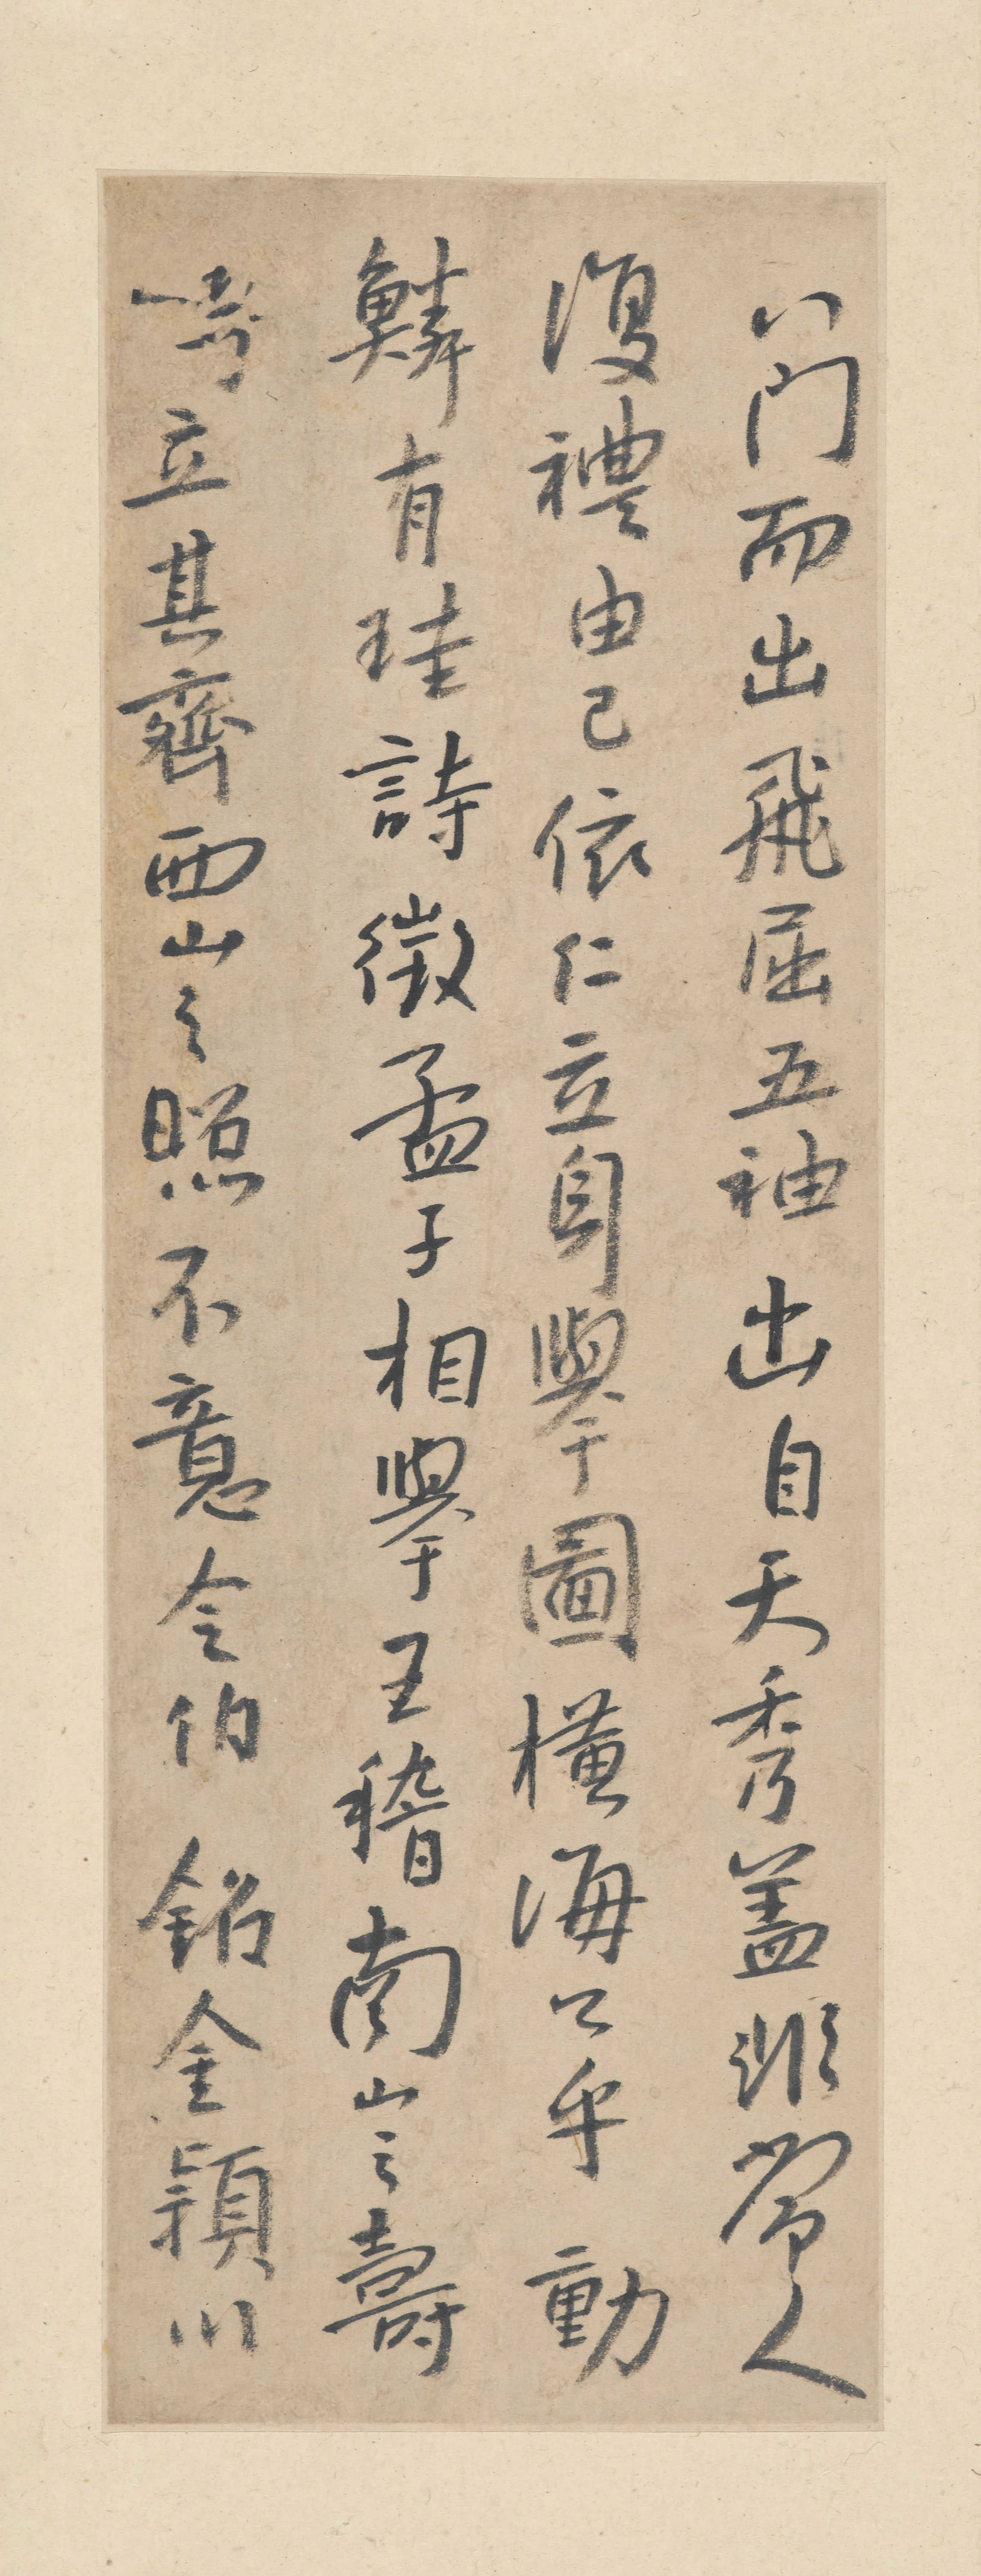 八門而出飛屈五袖出自天秀蓋非常人
復禮由己依仁立身舉圖橫海公乎動
鱗有珪詩徵孟子相舉王稽南山之壽
立其齊西山之照不意令伯銘金潁川